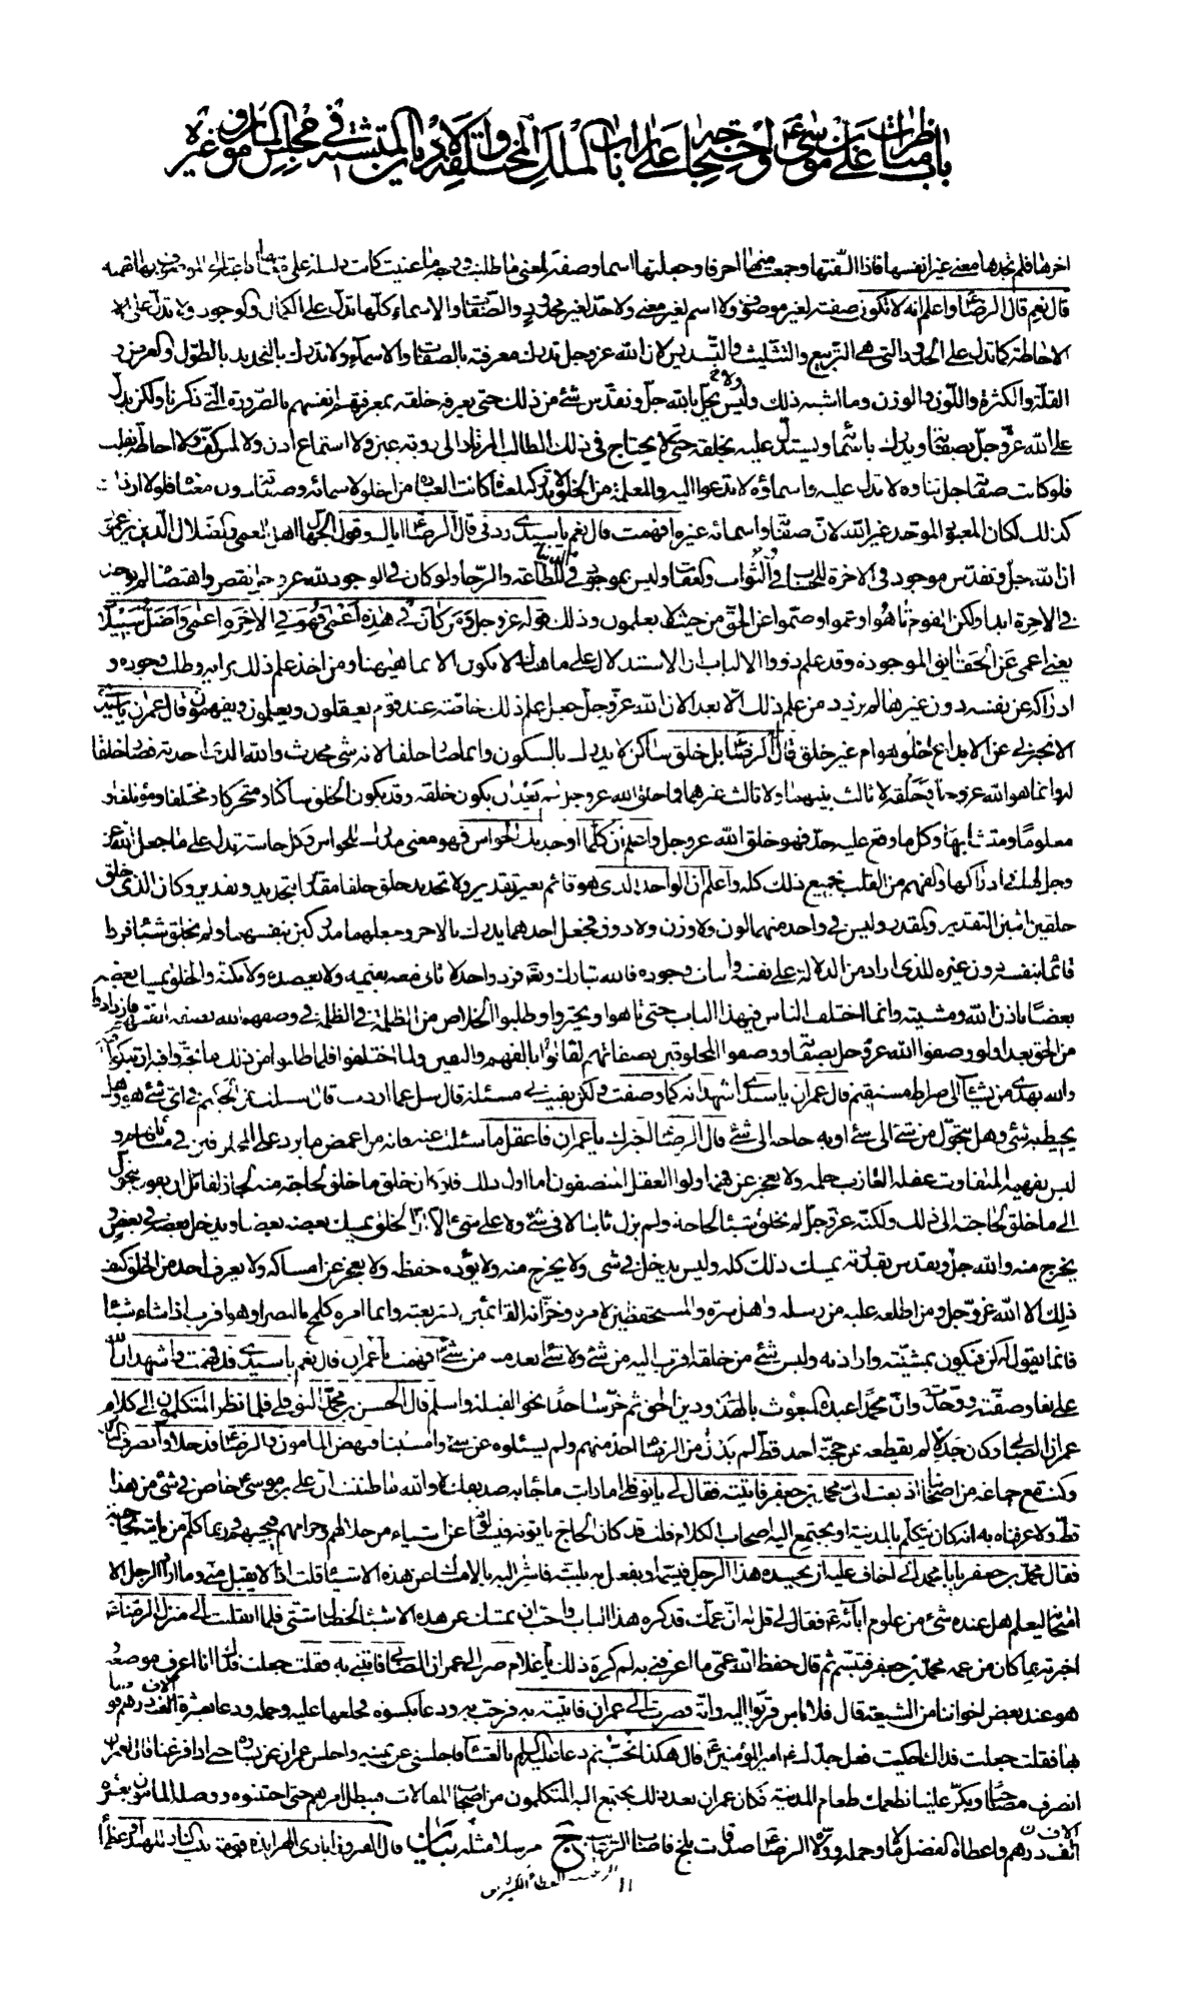 باب مناظرات علي بن موسى واحتجاجه على ارباب الملل المختلفة والاديان المتشتتة في مجلس المأمون وغيره
اخرها فلم نجدها معنى غير انفسها فاذا الفتها وجمعت منها احرفا وجعلتها اسما وصفة لمعنى ما طلبت ووجه ما عنيت كانت دليلة على
قال نعم قال الرضا واعلم انه لا تكون صفة لغير موصوف ولا اسم لغير معنى ولا حد لغير محدود والصفات والاسماء كلها تدل على الكمال والوجود ولا تدل على
الاحاطة كما تدل على الحدود التي هي التربيع والتثليث والتسديس لان الله عز وجل تدرك معرفته بالصفات والاسماء ولا تدرك بالتحديد بالطول والعرض و
القلة والكثرة واللون والوزن وما اشبه ذلك وليس يحل بالله جل وتقدس شئ من ذلك حتى يعرفه خلقه بمعرفتهم انفسهم بالضرورة التي ذكرنا ولكن يدل
على الله عز وجل بصفاته ويدرك باسمائه ويستدل عليه بخلقه حتى لا يحتاج في ذلك الطالب المرتاد الى روية عين ولا استماع اذن ولا لمس كف ولا احاطة بقلب
فلو كانت صفاته جل ثناؤه لا تدل عليه واسماؤه لا تدعوا اليه والمعلمة من الخلق لا تدركه لمعناه كانت العبادة من الخلق لاسمائه وصفاته دون معناه فلولا ان ذلك
كذلك لكان المعبود الموحد غير الله لان صفاته واسمائه غيره افهمت قال نعم يا سيدي زدني قال الرضا اياك وقول الجهال اهل العمى والضلال الذين يزعمون
ان الله جل وتقدس موجود في الاخرة للحساب في الثواب والعقاب وليس بموجود في الدنيا للطاعة والرجاء ولو كان في الوجود لله عز وجل نقص واهتضام لم يوجد
في الاخرة ابدا ولكن القوم تاهوا وعموا وصموا عن الحق من حيث لا يعلمون وذلك قوله عز وجل ومن كان في هذه اعمى فهو في الاخرة اعمى واضل سبيلا
يعني اعمى عن الحقايق الموجودة وقد علم ذووا الالباب ان الاستدلال على ما هناك لا يكون الا بما هيهنا ومن اخذ علم ذلك برايه وطلب وجوده و
ادراكه عن نفسه دون غيرها لم يزدد من علم ذلك الا بعدا لان الله عز وجل جعل علم ذلك خاصة عند قوم يعقلون ويعلمون ويفهمون قال عمران يا سيدي
الا تخبرني عن الابداع اخلق هو ام غير خلق قال الرضا بل خلق ساكن لا يدرك بالسكون وانما صار خلقا لانه شئ محدث والله الذي احدثه فصار خلقا
له وانما هو الله عز وجل وخلقه لا ثالث بينهما ولا ثالث غيرهما فما خلق الله عز وجل لم يعد ان يكون خلقه وقد يكون الخلق ساكنا ومتحركا ومختلفا ومؤتلفا و
معلوما ومتشابها وكل ما وقع عليه حد فهو خلق الله عز وجل واعلم ان كلما اوجدتك الحواس فهو معنى مدرك للحواس وكل حاسة تدل على ما جعل الله عز
وجل لها في ادراكها والفهم من القلب بجميع ذلك كله واعلم ان الواحد الذي هو قائم بغير تقدير ولا تحديد خلق خلقا مقدرا بتحديد وتقدير وكان الذي خلق
خلقين اثنين التقدير والمقدر وليس في واحد منهما لون ولا وزن ولا ذوق فجعل احدهما يدرك بالاخر وجعلهما مدركين بنفسهما ولم يخلق شيئا فردا
قائما بنفسه دون غيره للذي اراد من الدلالة على نفسه واثبات وجوده فالله تبارك وتعالى فرد واحد لا ثاني معه يقيمه ولا يعضده ولا يكنه والخلق يمسك بعضه
بعضا باذن الله ومشيته وانما اختلف الناس في هذا الباب حتى تاهوا وتحيروا وطلبوا الخلاص من الظلمة في الظلمة في وصفهم الله بصفة انفسهم فازدادوا
من الحق بعدا ولو وصفوا الله عز وجل بصفاته ووصفوا المخلوقين بصفاتهم لقالوا بالفهم واليقين ولما اختلفوا فلما طلبوا من ذلك ما تحيروا فيه ارتبكوا
والله يهدي من يشاء الى صراط مستقيم قال عمران يا سيدي اشهد انه كما وصفت ولكن بقيت لي مسئلة قال سل عما اردت قال اسئلك عن الحكيم في اي شئ هو وهل
يحيط به شئ وهل يتحول من شئ الى شئ او به حاجة الى شئ قال الرضا اخبرك يا عمران فاعقل ما سئلت عنه فانه من اغمض ما يرد على المخلوقين في مسائلهم و
ليس يفهمه المتفاوت عقله العازب حلمه ولا يعجز عن فهمه اولوا العقل المنصفون اما اول ذلك فلو كان خلق ما خلق لحاجة منه لجاز لقائل ان يقول يتحول
الى ما خلق لحاجته الى ذلك ولكنه عز وجل لم يخلق شيئا لحاجة ولم يزل ثابتا لا في شئ ولا على شئ الا ان الخلق يمسك بعضه بعضا ويدخل بعضه في بعض و
يخرج منه والله جل وتقدس بقدرته يمسك ذلك كله وليس يدخل في شئ ولا يخرج منه ولا يؤده حفظه ولا يعجز عن امساكه ولا يعرف احد من الخلق كيف
ذلك الا الله عز وجل ومن اطلعه عليه من رسله واهل سره والمستحفظين لامره وخزانه القائمين بشريعته وانما امره كلمح بالبصر او هو اقرب اذا شاء شيئا
فانما يقول له كن فيكون بمشيته وارادته وليس شئ من خلقه اقرب اليه من شئ ولا شئ ابعد منه من شئ افهمت يا عمران قال نعم يا سيدي قد فهمت واشهد ان الله
على ما وصفته ووحدته وان محمدا عبده المبعوث بالهدى ودين الحق ثم خر ساجدا نحو القبلة واسلم قال الحسن بن محمد النوفلي فلما نظر المتكلمون الى كلام
عمران الصابي وكان جدلا لم يقطعه عن حجته احد قط لم يدن من الرضا احد منهم ولم يسئلوه عن شئ وامسينا فنهض المأمون والرضا فدخلا وانصرف الناس
وكنت مع جماعة من اصحابنا اذ بعث الي محمد بن جعفر فاتيته فقال لي يا نوفلي اما رايت ما جاء به صديقك لا والله ما ظننت ان علي بن موسى خاض في شئ من هذا
قط ولا عرفناه به انه كان يتكلم بالمدينة او يجتمع اليه اصحاب الكلام قلت قد كان الحاج ياتونه فيسئلونه عن اشياء من حلالهم وحرامهم فيجيبهم وربما كلم من ياتيه يحاجه
فقال محمد بن جعفر يا با محمد اني اخاف عليه ان يحسده هذا الرجل فيسمه او يفعل به بلية فاشر اليه بالامساك عن هذه الاشياء قلت اذا لا يقبل مني وما اراد الرجل الا
امتحانه ليعلم هل عنده شئ من علوم ابائه فقال لي قل له ان عمك قد كره هذا الباب واحب ان تمسك عن هذه الاشياء لخصال شتى فلما انقلبت الى منزل الرضا
اخبرته بما كان من عمه محمد بن جعفر فتبسم ثم قال حفظ الله عمي ما اعرفني به لم كره ذلك يا غلام صر الى عمران الصابي فاتني به فقلت جعلت فداك انا اعرف موضعه
هو عند بعض اخواننا من الشيعة قال فلا باس قربوا اليه دابة فصرت الى عمران فاتيته به فرحب به ودعا بكسوة فخلعها عليه وحمله ودعا بعشرة الاف درهم فوصله
بها فقلت جعلت فداك حكيت فعل جدك امير المؤمنين قال هكذا نحب ثم دعا بالعشاء فاجلسني عن يمينه واجلس عمران عن يساره حتى اذا فرغنا قال لعمران
انصرف مصاحبا وبكر علينا نطعمك طعام المدينة فكان عمران بعد ذلك يجتمع اليه المتكلمون من اصحاب المقالات فيبطل امرهم حتى اجتنبوه ووصله المأمون بعشرة
الاف درهم واعطاه الفضل مالا وحمله وولاه الرضا صدقات بلخ فاصاب الرغايب ج مرسلا مثله بيان قال الفيروزابادي